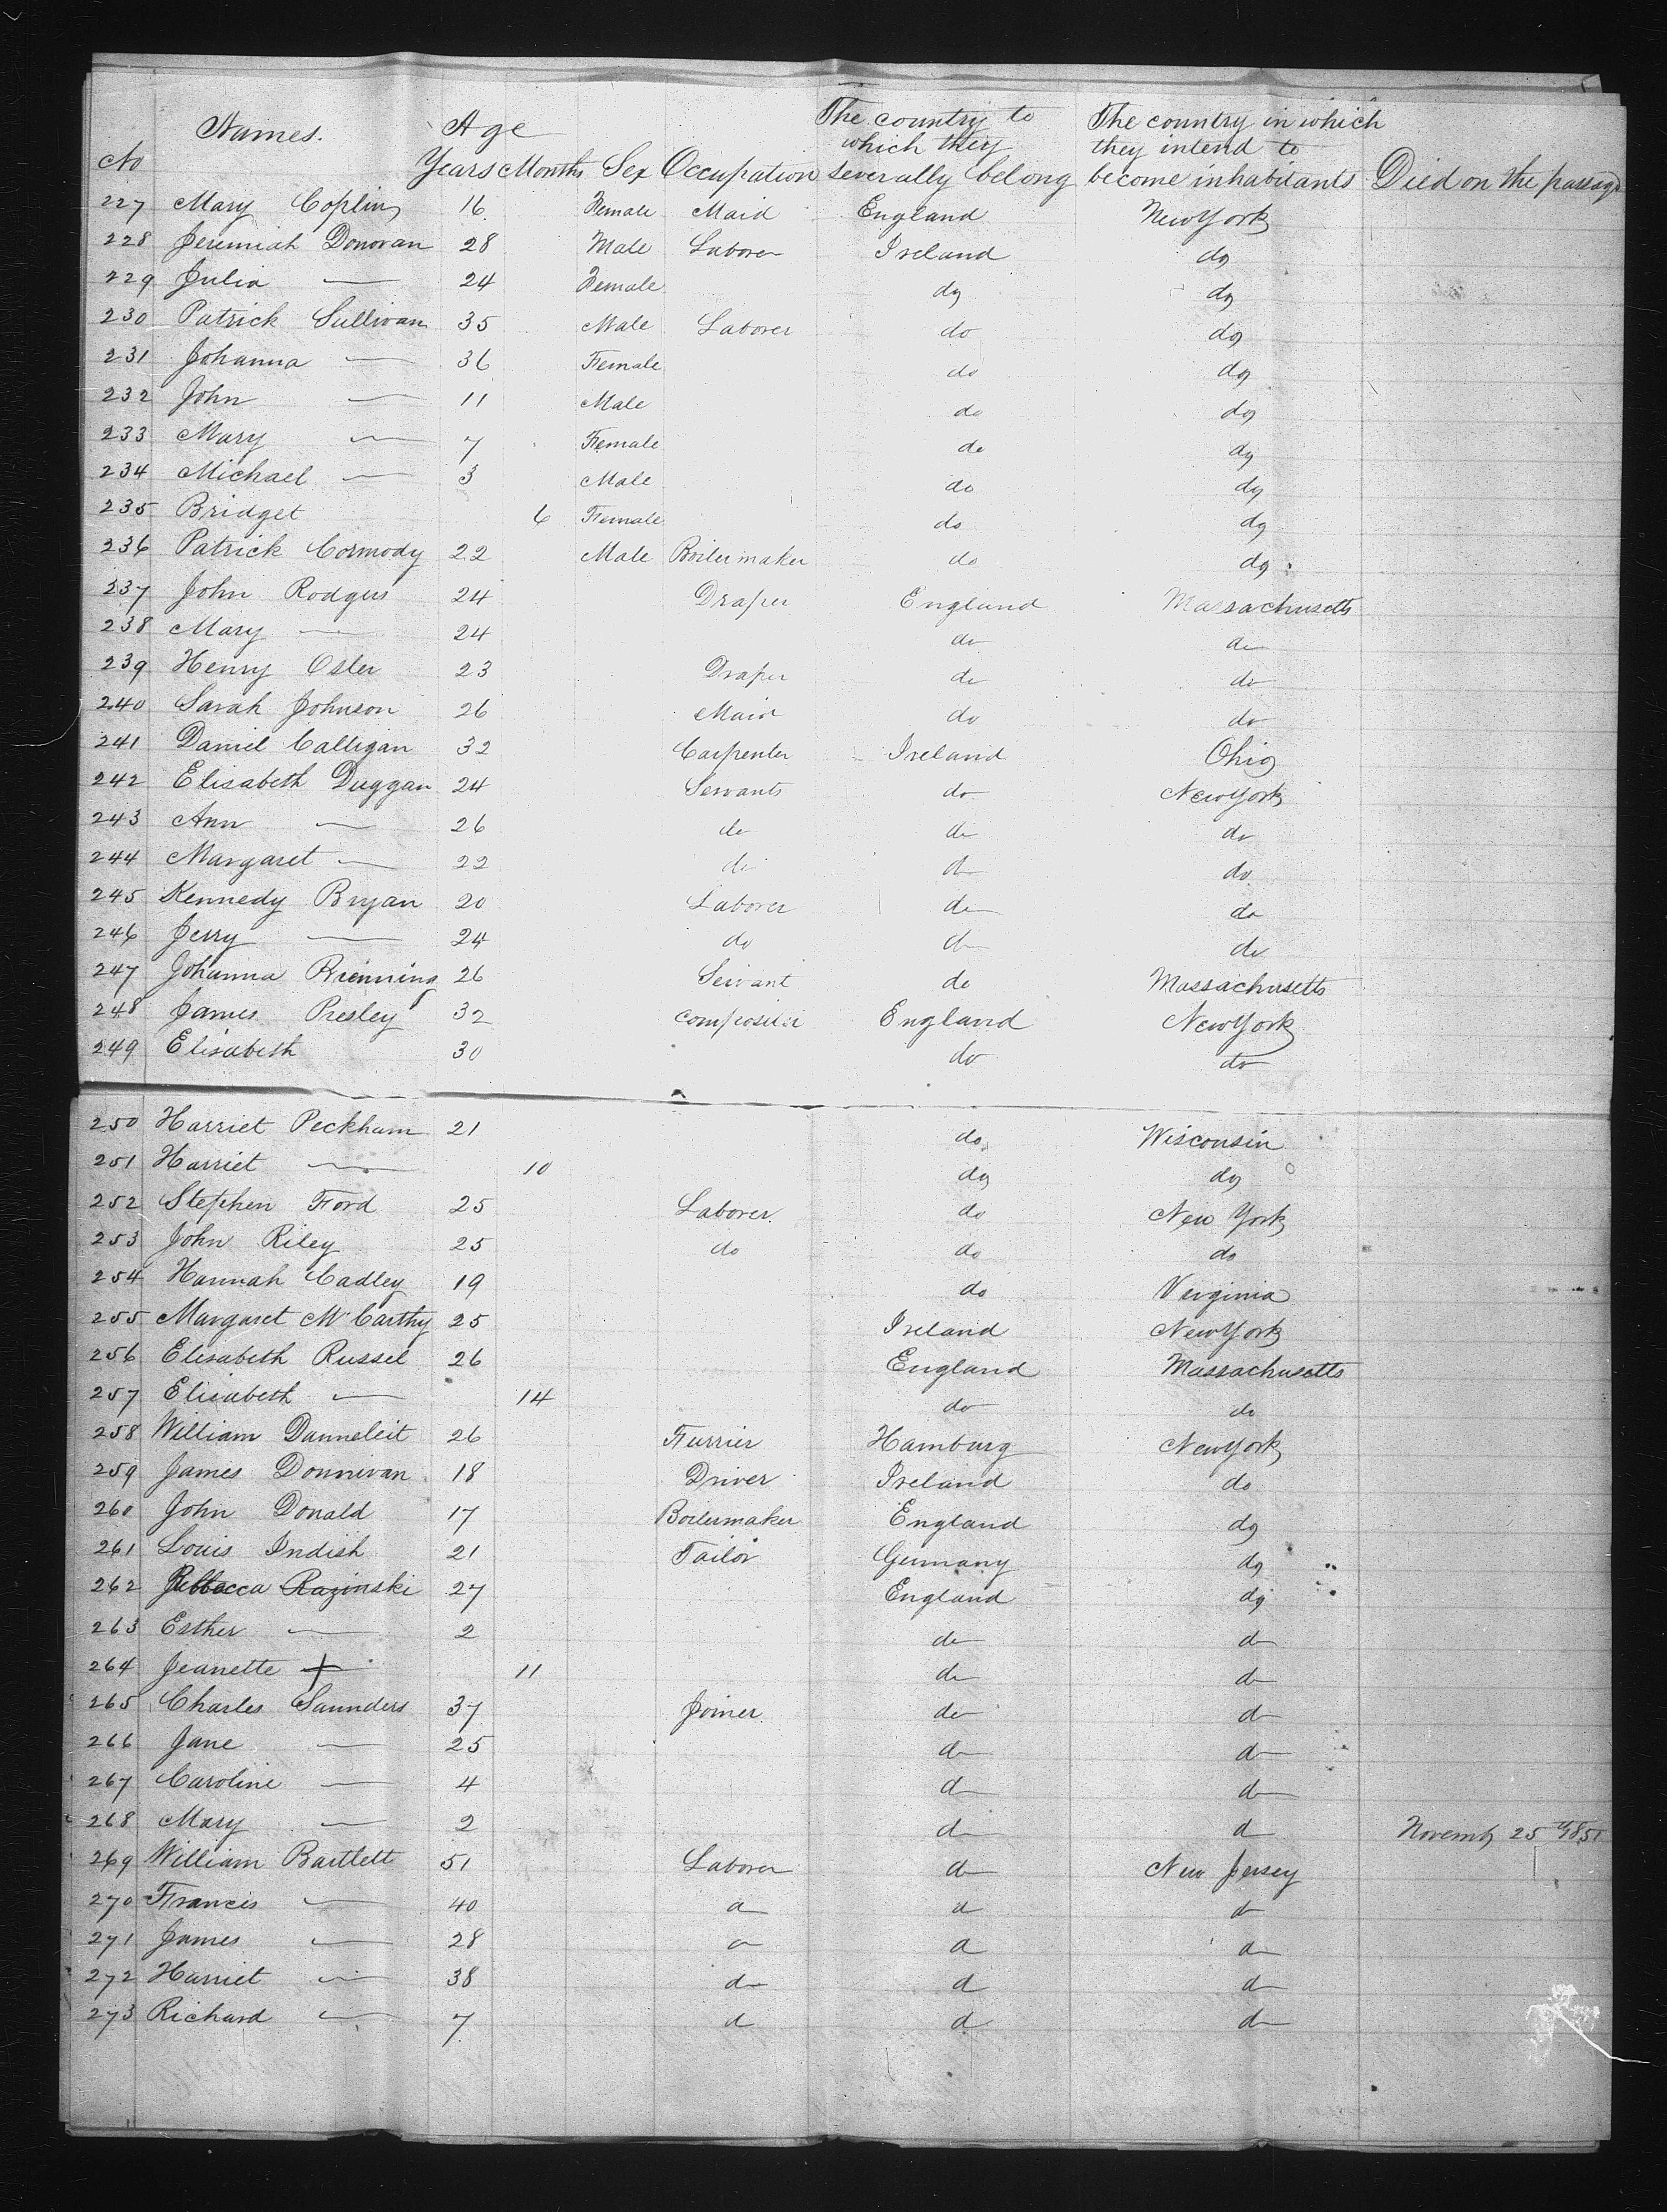 No Names. Age Years Months Sex Occupation The country to which they severally belong The country in which they intend to become inhabitants Died on the passage
227 Mary Coplin 16 Female Maid England New York
228 Jeremiah Donovan 28 Male Laborer Ireland do
229 Julia — 24 Female do do
230 Patrick Sullivan 35 Male Laborer do do
231 Johanna — 36 Female do do
232 John — 11 Male do do
233 Mary — 7 Female do do
234 Michael — 3 Male do do
235 Bridget 6 Female do do
236 Patrick Cormody 22 Male Boilermaker do do
237 John Rodgers 24 Draper England Massachusetts
238 Mary — 24 do do
239 Henry Osler 23 Draper do do
240 Sarah Johnson 26 Maid do do
241 Daniel Calligan 32 Carpenter Ireland Ohio
242 Elisabeth Duggan 24 Servants do New York
243 Ann — 26 do do do
244 Margaret — 22 do do do
245 Kennedy Bryan 20 Laborer do do
246 Jerry — 24 do do do
247 Johanna Brenning 26 Servant do Massachusetts
248 James Presley 32 compositor England New York
249 Elisabeth 30 do do
250 Harriet Peckham 21 do Wisconsin
251 Harriet — 10 do do
252 Stephen Ford 25 Laborer do New York
253 John Riley 25 do do do
254 Hannah Cadley 19 do Virginia
255 Margaret McCarthy 25 Ireland New York
256 Elisabeth Russel 26 England Massachusetts
257 Elisabeth — 14 do do
258 William Danneleit 26 Furrier Hamburg New York
259 James Donnivan 18 Driver Ireland do
260 John Donald 17 Boilermaker England do
261 Louis Indish 21 Tailor Germany do
262 Rebbacca Razinski 27 England do
263 Esther — 2 do do
264 Jeanette + 11 do do
265 Charles Saunders 37 Joiner do do
266 Jane — 25 do do
267 Caroline — 4 do do
268 Mary — 2 do do Novemb 25 1851
269 William Bartlett 51 Laborer do New Jersey
270 Francis — 40 do do do
271 James — 28 do do do
272 Harriet — 38 do do do
273 Richard — 7 do do do